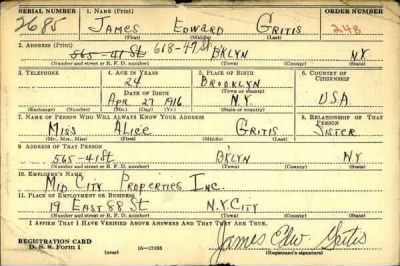 SERIAL NUMBER 1. NAME (Print) ORDER NUMBER
2685 JAMES EDWARD GRITIS 248
(First) (Middle) (Last)
2. ADDRESS (Print)
565-41 St 618-47 St B'KLYN N.Y.
(Number and street or R. F. D. number) (Town) (County) (State)
3. TELEPHONE 4. AGE IN YEARS 5. PLACE OF BIRTH 6. COUNTRY OF CITIZENSHIP
24 BROOKLYN
(Town or county)
DATE OF BIRTH
APR 27 1916 N.Y. U.S.A.
(Exchange) (Number) (Mo.) (Day) (Yr.) (State or country)
7. NAME OF PERSON WHO WILL ALWAYS KNOW YOUR ADDRESS 8. RELATIONSHIP OF THAT PERSON
MISS ALICE GRITIS SISTER
(Mr., Mrs., Miss) (First) (Middle) (Last)
9. ADDRESS OF THAT PERSON
565-41 St B'KLYN NY
(Number and street or R. F. D. number) (Town) (County) (State)
10. EMPLOYER'S NAME
MID CITY PROPERTIES INC.
11. PLACE OF EMPLOYMENT OR BUSINESS
19 EAST 88 St N.Y. CITY
(Number and street or R. F. D. number) (Town) (County) (State)
I AFFIRM THAT I HAVE VERIFIED ABOVE ANSWERS AND THAT THEY ARE TRUE.
REGISTRATION CARD
D. S. S. Form 1 (over) 16—17105
James Edw. Gritis
(Registrant's signature)